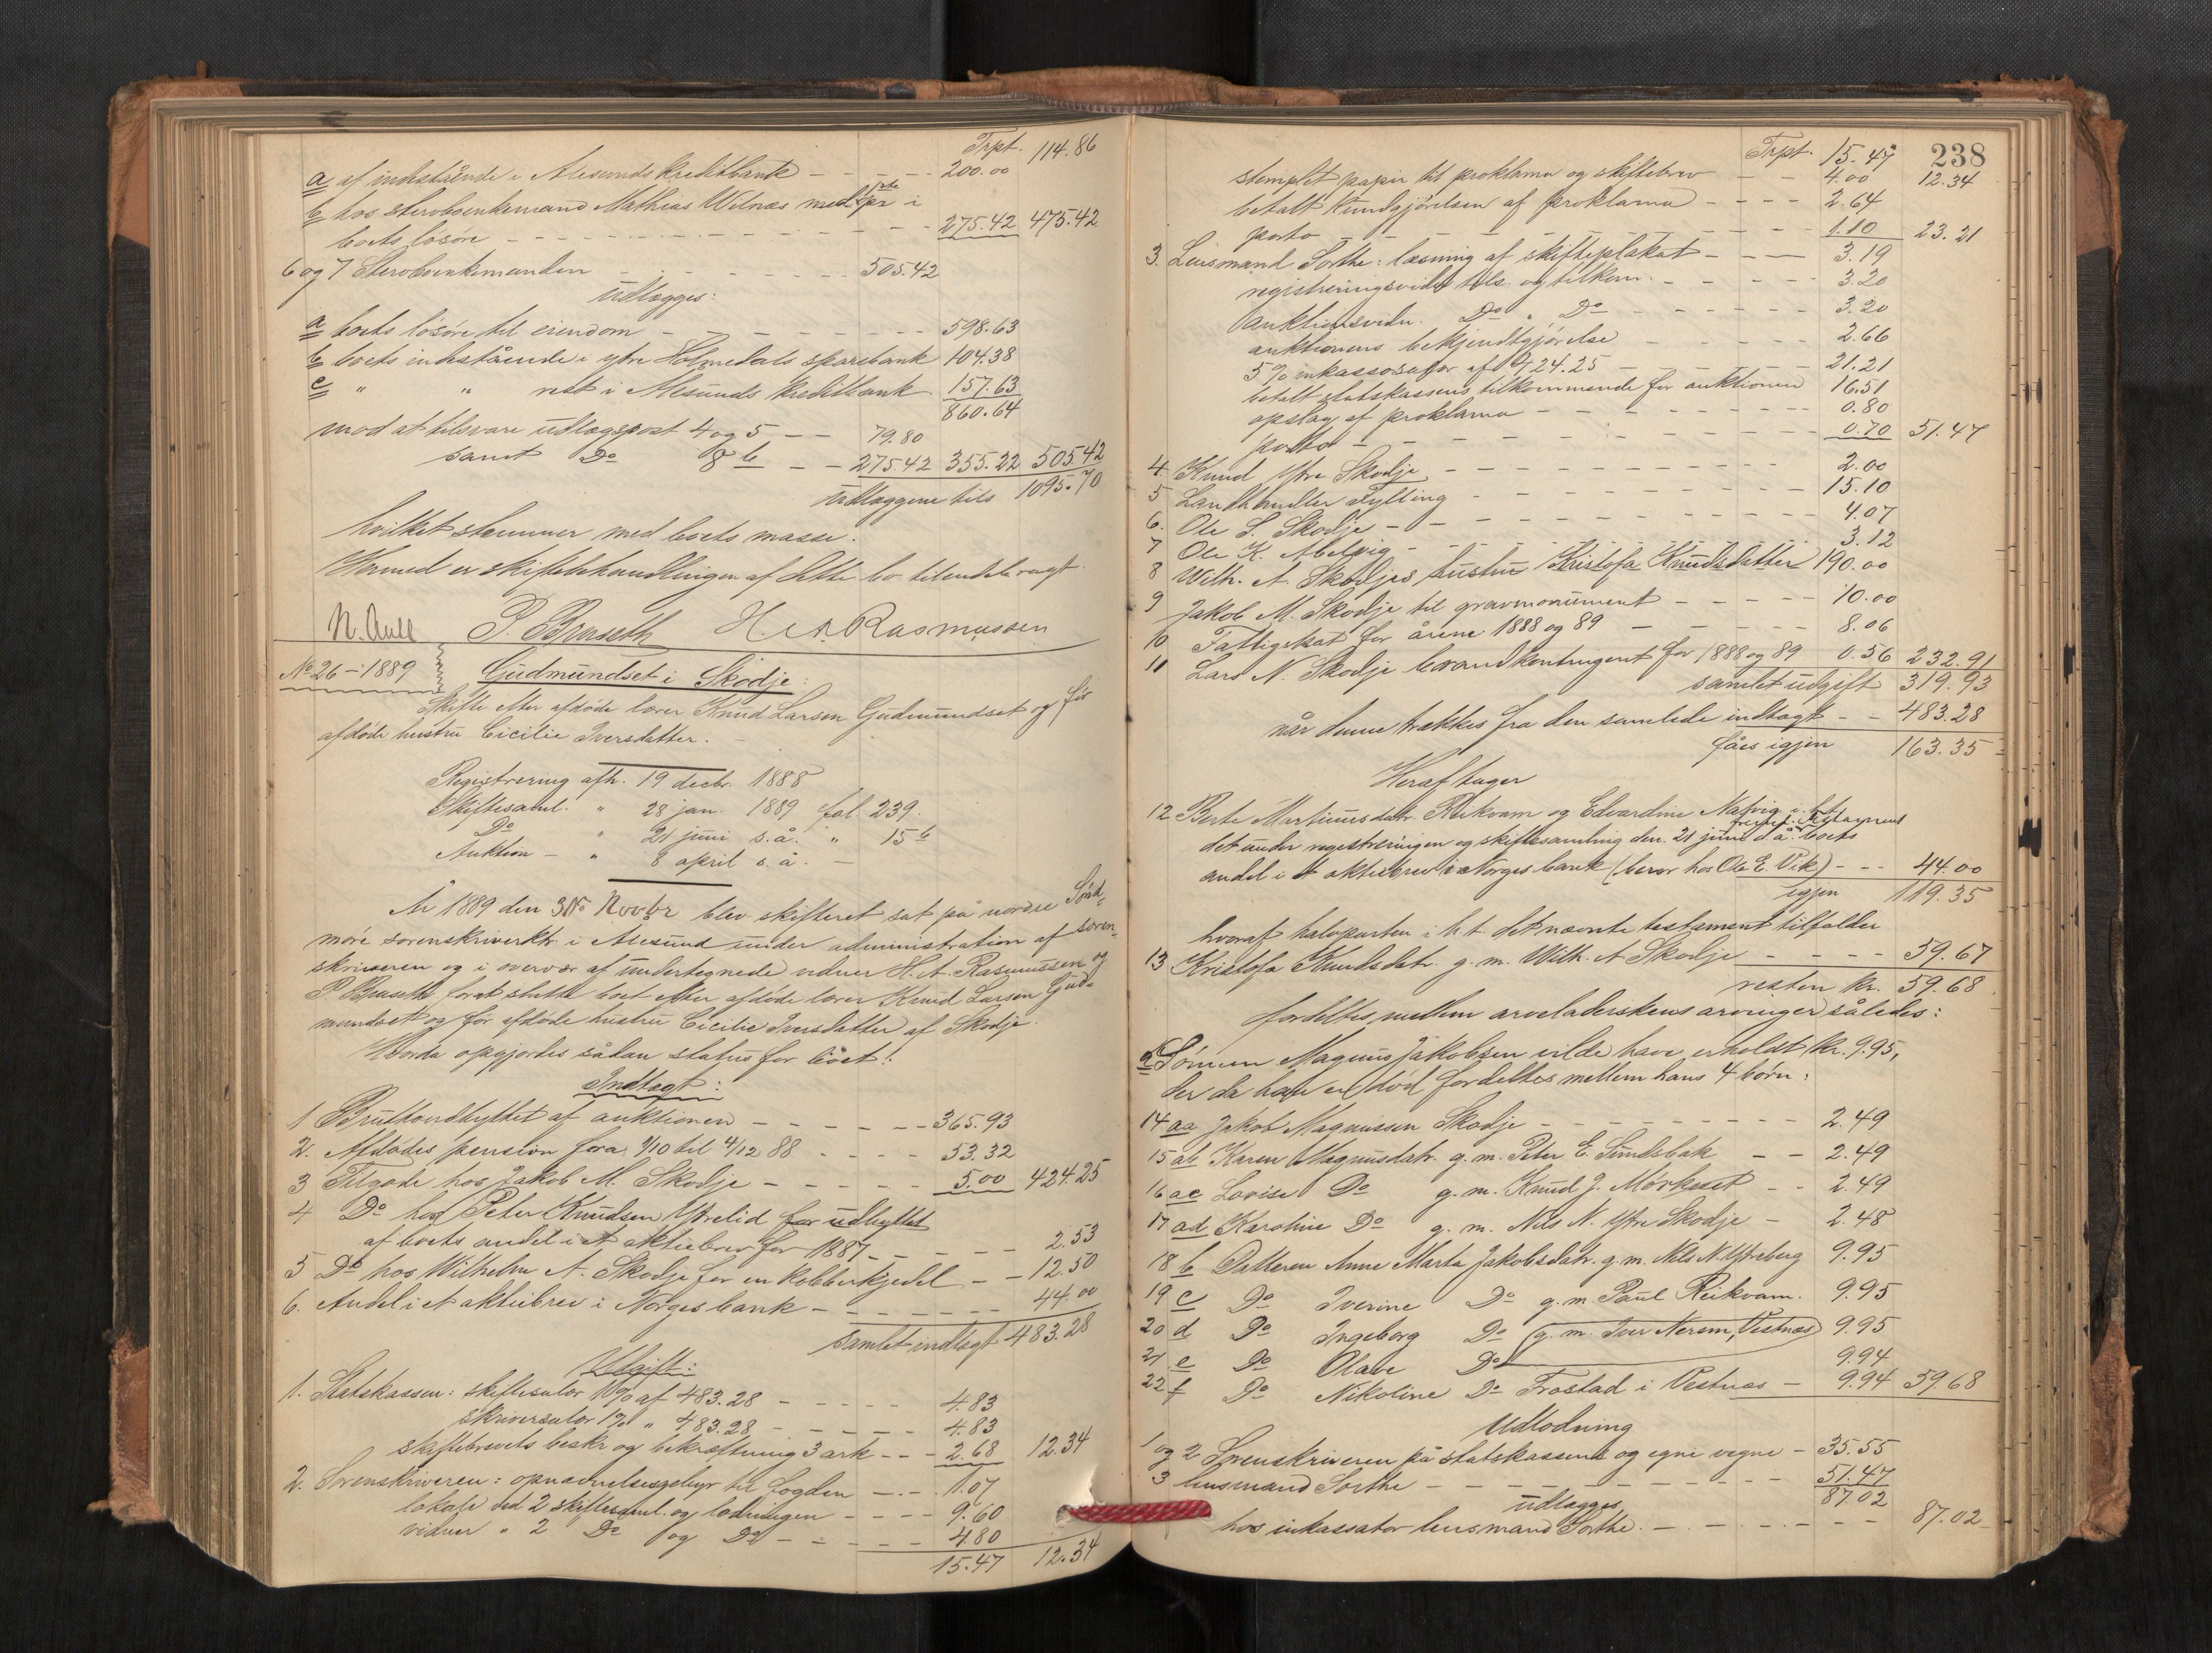 Trpt. 114.86
a af indestående i Alesunds kreditbank - - - 200.00
b hos sterboenkemand Mathias Witnæs med i
boets løsøre - - - 275.42 475.42
6 og 7 Sterboenkemanden - - - 505.42
udlægges:
a boets løsøre til eiendom - - - 598.63
b boets indestående i ytre Holmedals sparebank 104.38
c " " rest i Alesunds kreditbank 157.63
860.64
mod at tilsvare udlægspost 4 og 5 - - 79.80
samt Do 8 b - - 275.42 355.22 505.42
udlæggene tils 1095.70
hvilket stemmer med boets masse.
Hermed er skiftebehandlingen af dette bo tilendebragt.
N. Aall P. Bruseth H. A. Rasmussen
No 26 - 1889 Gudmundset i Skodje:
Skifte efter afdøde lærer Knud Larsen Gudmundset og før
afdøde hustru Cicilie Iversdatter.
Registrering afh. 19 decbr. 1888
Skiftesaml. " 28 jan. 1889 fol. 239.
Do " 21 juni s.å. " 15 b
Auktion - " 8 april s.å. -
År 1889 den Novbr blev skifteret sat på nordre Sønd-
møre sorenskriverktr i Alesund under administration af soren-
skriveren og i overvær af undertegnede vidner H. A. Rasmussen og
P. Bruseth forat slutte boet efter afdøde lærer Knud Larsen Gud-
mundset og før afdøde hustru Cicilie Iversdatter af Skodje.
Hvorda opgjordes sådan status for boet:
Indtægt:
1 Bruttoudbyttet af auktionen - - - 365.93
2. Afdødes pension fra 1/10 til 4/12 88 - - - 53.32
3 Tilgode hos Jakob M. Skodje - - - 5.00 424.25
4 Do hos Peter Knudsen Ytrelid for udbyttet
af boets andel i et aktiebrev for 1887 - - - 2.53
5 Do hos Wilhelm A. Skodje for en kobberkjedel - - 12.50
6. Andel i et aktiebrev i Norges bank - - - 44.00
samlet indtægt 483.28
Udgift:
1. Statskassen: skiftesalær 1% af 483.28 - - - 4.83
skriversalær 1% " 483.28 - - - 4.83
skiftebrevets beskr og bekræftning 3 ark - - 2.68 12.34
2. Sorenskriveren: opnævnelsesgebyr til fogden - - 1.07
lokale ved 2 skiftesaml. og lodningen - - - 9.60
vidner " 2 Do og Do - - - 4.80
15.47 12.34
238
Trpt. 15.47 12.34
stemplet papir til proklama og skiftebrev - - 4.00
betalt kundgjørelsen af proklama - - - 2.64
porto - - - 1.10 23.21
3. Lensmand Sorthe: læsning af skifteplakat - - - 3.19
registreringsvidn tils. og tilkom. - - - 3.20
auktionsvidn. Do " Do - - - 3.20
auktionens bekjendtgjørelse - - - 2.66
5% inkassosalær af 424.25 - - - 21.21
betalt statskassens tilkommende for auktionen 16.51
opslag af proklama - - - 0.80
porto - - - 0.70 51.47
4 Knud Ytre Skodje - - - 2.00
5 Landhandler Fylling - - - 15.10
6. Ole S. Skodje - - - 4.07
7 Ole K. - - - 3.12
8 Wilh. A. Skodjes hustru Kristofa Knudsdatter 190.00
9 Jakob M. Skodje til gravmonument - - - 10.00
10 Fattigskat for årene 1888 og 89 - - - 8.06
11 Lars N. Skodje brandkontingent for 1888 og 89 0.56 232.91
samlet udgift 319.93
når denne trækkes fra den samlede indtægt - - 483.28
fåes igjen 163.35
Heraf tager
12 Berte Martinusdatr. Reikvam og Edvardine Natvig i
det under registreringen og skiftesamling den 21 juni d.å. boets
andel i et aktiebrev i Norges bank (beror hos Ole E. Vik) - - 44.00
igjen 119.35
hvoraf halvparten i h.t. det nævnte testament tilfalder
13 Kristofa Knudsdatr. g.m. Wilh. A Skodje - - - 59.67
resten kr. 59.68
fordeltes mellem arveladerskens arvinger således:
a Sønnen Magnus Jakobsen vilde have erholdt kr. 9.95,
der da han er død fordeltes mellem hans 4 børn:
14 aa Jakob Magnussen Skodje - - - 2.49
15 ab Karen Magnusdatr. g.m. Peter E. Sundsbak - - 2.49
16 ac Lovise Do g.m. Knud J. Mørkeset - - 2.49
17 ad Karoline Do g.m. Nils N. Ytre Skodje - 2.48
18 b Datteren Anne Marta Jakobsdatr. g.m. Nils N. Ytreberg 9.95
19 c Do Iverine Do g.m. Paul Reikvam. 9.95
20 d Do Ingeborg Do (g.m. Iver Nerem, Vestnæs) 9.95
21 e Do Olave Do 9.94
22 f Do Nikoline Do Frostad i Vestnæs - 9.94 59.68
Udlodning
1 og 2 Sorenskriveren på statskassens og egne vegne - 35.55
3 lensmand Sorthe - - - 51.47
87.02
udlægges
hos inkassator lensmand Sorthe. - - - 87.02